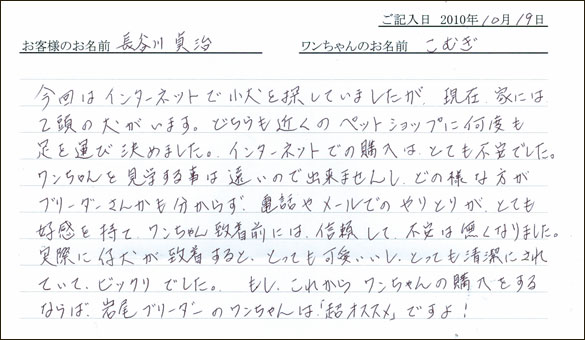 ご記入日 2010年10月19日
お客様のお名前 長谷川 貞治 ワンちゃんのお名前 こむぎ
今回はインターネットで小犬を探していましたが、現在、家には
2頭の犬がいます。どちらも近くのペットショップに何度も
足を運び決めました。インターネットでの購入は、とても不安でした。
ワンちゃんを見学する事は遠いので出来ませんし、どの様な方が
ブリーダーさんかも分からず、電話やメールでのやりとりが、とても
好感を持て、ワンちゃん到着前には、信頼して、不安は無くなりました。
実際に仔犬が到着すると、とっても可愛いいし、とっても清潔にされ
ていて、ビックリでした。 もし、これからワンちゃんの購入をする
ならば、岩尾ブリーダーのワンちゃんは「超オススメ」ですよ!